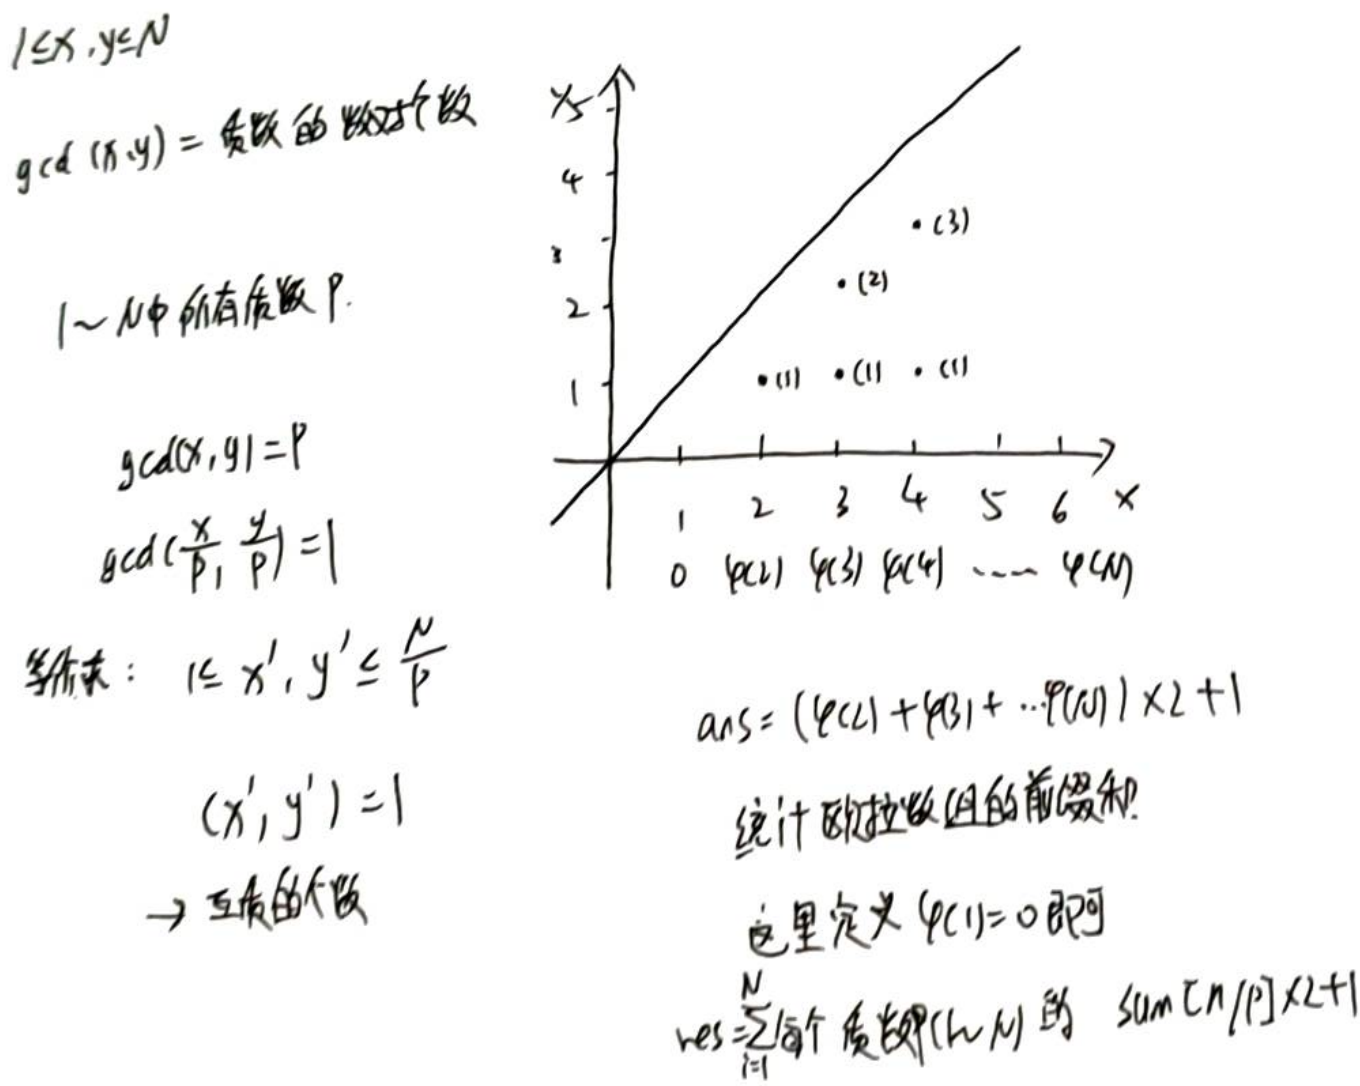 1≤x,y≤N
gcd(x,y)=质数的数对个数
1~N中所有质数P.
gcd(x,y)=P
gcd(x/P, y/P)=1
等价求: 1≤x',y'≤N/P
(x',y')=1
→ 互质的个数
y
5
4
3
2
1
·(3)
·(2)
·(1) ·(1) ·(1)
1 2 3 4 5 6 x
0 φ(2) φ(3) φ(4) ···· φ(N)
ans=(φ(2)+φ(3)+…φ(N))×2+1
统计欧拉数组的前缀和.
这里定义φ(1)=0即可
res=∑ i=1 N 每个质数P(1~N)的 sum[n/p]×2+1